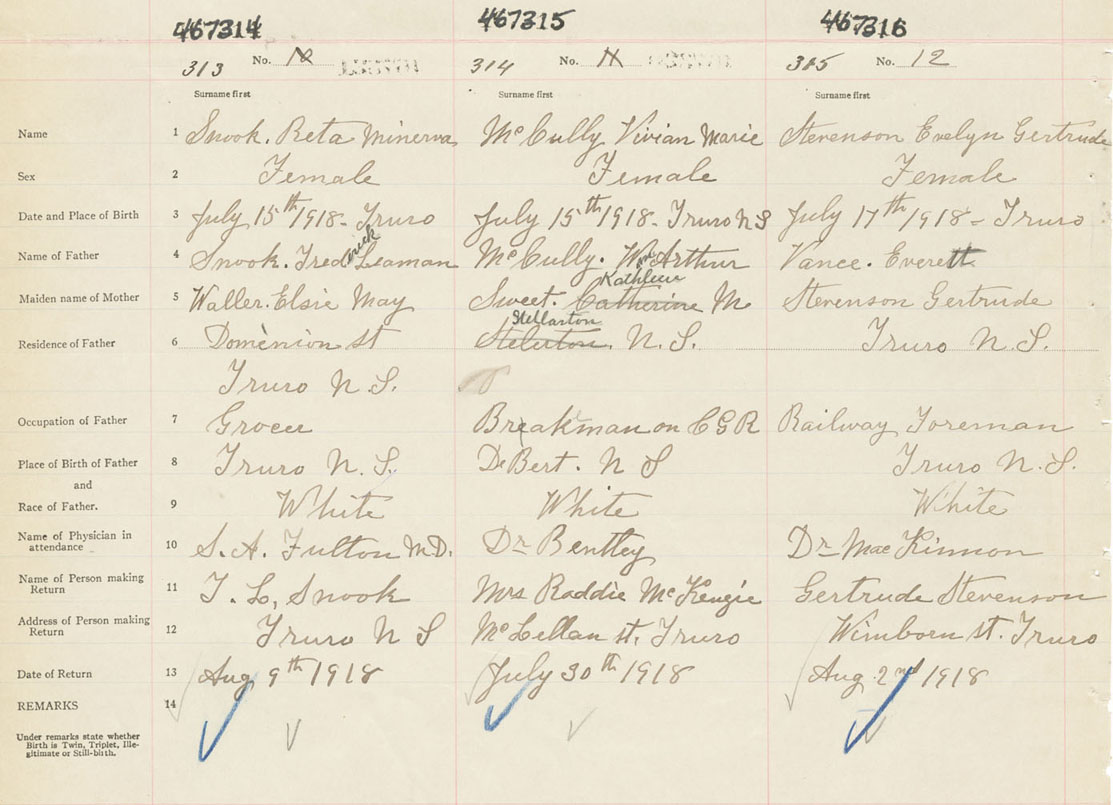 467314 467315 467316
313 No. 10 314 No. 11 315 No. 12
Surname first Surname first Surname first
Name 1 Snook. Reta Minerva McCully Vivian Marie Stevenson Evelyn Gertrude
Sex 2 Female Female Female
Date and Place of Birth 3 July 15th 1918 - Truro July 15th 1918 - Truro N S July 17th 1918 - Truro
Name of Father 4 Snook. Frederick Leaman McCully. Wm Arthur Vance. Everett
Kathleen
Maiden name of Mother 5 Waller. Elsie May Sweet. Catherine M Stevenson Gertrude
Stellarton
Residence of Father 6 Dominion st Stelerton. N. S. Truro N S.
Truro N. S.
Occupation of Father 7 Grocer Breakman on C G R Railway Foreman
Place of Birth of Father 8 Truro N. S. DeBert. N S Truro N. S.
and
Race of Father. 9 White White White
Name of Physician in
attendance 10 S. A. Fulton M.D. Dr Bentley Dr MacKinnon
Name of Person making
Return 11 F. L. Snook Mrs Roddie McKenzie Gertrude Stevenson
Address of Person making
Return 12 Truro N S McLellan st. Truro Wimborn st. Truro
Date of Return 13 Aug 9th 1918 July 30th 1918 Aug 2nd 1918
REMARKS 14
Under remarks state whether
Birth is Twin, Triplet, Ille-
gitimate or Still-birth.